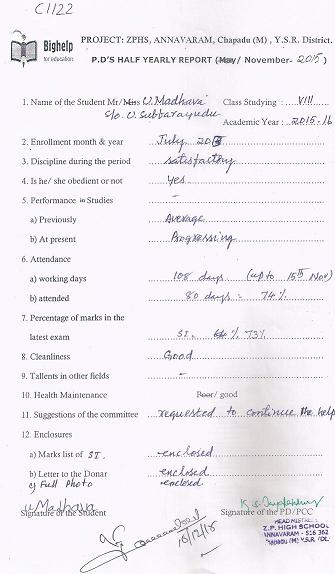 C1122
Bighelp
for education
PROJECT: ZPHS, ANNAVARAM, Chapadu (M), Y.S.R. District.
P.D'S HALF YEARLY REPORT (May/ November- 2015)
1. Name of the Student Mr/Miss U. Madhava Class Studying : VIII
S/o. U. Subbarayudu Academic Year : 2015-16
2. Enrollment month & year July
3. Discipline during the period satisfactory
4. Is he/ she obedient or not yes
5. Performance in Studies -
a) Previously Average
b) At present Progressing
6. Attendance
a) working days 108 days. (up to 15th Nov)
b) attended 80 days = 74%
7. Percentage of marks in the
latest exam SI. 73%
8. Cleanliness Good
9. Tallents in other fields -
10. Health Maintenance Poor/ good
11. Suggestions of the committee requested to continue the help
12. Enclosures
a) Marks list of SI. enclosed
b) Letter to the Donar enclosed
c) Full Photo enclosed
U. Madhava
Signature of the Student Signature of the PD/PCC
16/12/15
HEAD MASTER
Z.P. HIGH SCHOOL
ANNAVARAM - 516 362
Chapadu (M) Y.S.R. (Dt)